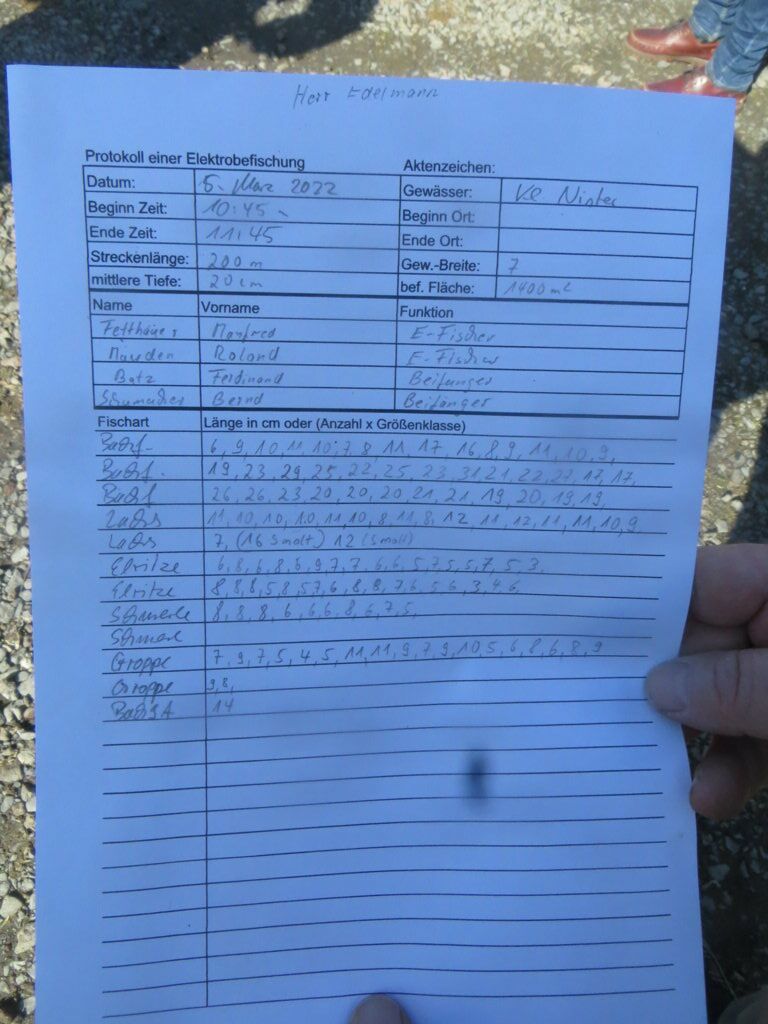 Herr Edelmann
Protokoll einer Elektrobefischung Aktenzeichen:
Datum: 5. März 2022 Gewässer: Kl Nister
Beginn Zeit: 10:45 Beginn Ort:
Ende Zeit: 11:45 Ende Ort:
Streckenlänge: 200 m Gew.-Breite: 7
mittlere Tiefe: 20 cm bef. Fläche: 1400 m²
Name Vorname Funktion
Manfred E-Fischer
Roland E-Fischer
Batz Ferdinand Beifänger
Schumacher Bernd Beifänger
Fischart Länge in cm oder (Anzahl x Größenklasse)
Bachf. 6, 9, 10, 11, 10, 7, 8, 11, 17, 16, 8, 9, 11, 10, 9,
Bachf. 19, 23, 29, 25, 22, 25, 23, 31, 21, 22, 17, 17,
Bachf 26, 26, 23, 20, 20, 20, 21, 21, 19, 20, 19, 19,
Lachs 11, 10, 10, 10, 11, 10, 8, 11, 8, 12, 11, 12, 11, 11, 10, 9,
Lachs 7, (16 Smolt) 12 (Smolt)
Elritze 6, 8, 6, 8, 6, 9, 7, 7, 6, 6, 5, 7, 5, 5, 7, 5, 3,
Elritze 8, 8, 8, 5, 8, 5, 7, 6, 8, 8, 7, 6, 5, 6, 3, 4, 6,
Schmerle 8, 8, 8, 6, 6, 6, 8, 6, 7, 5,
Schmerl
Groppe 7, 9, 7, 5, 4, 5, 11, 11, 9, 7, 9, 10, 5, 6, 8, 6, 8, 9
Groppe 9, 8,
14